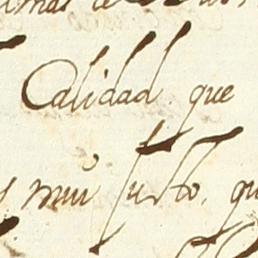 Calidad que
mui justo, qu